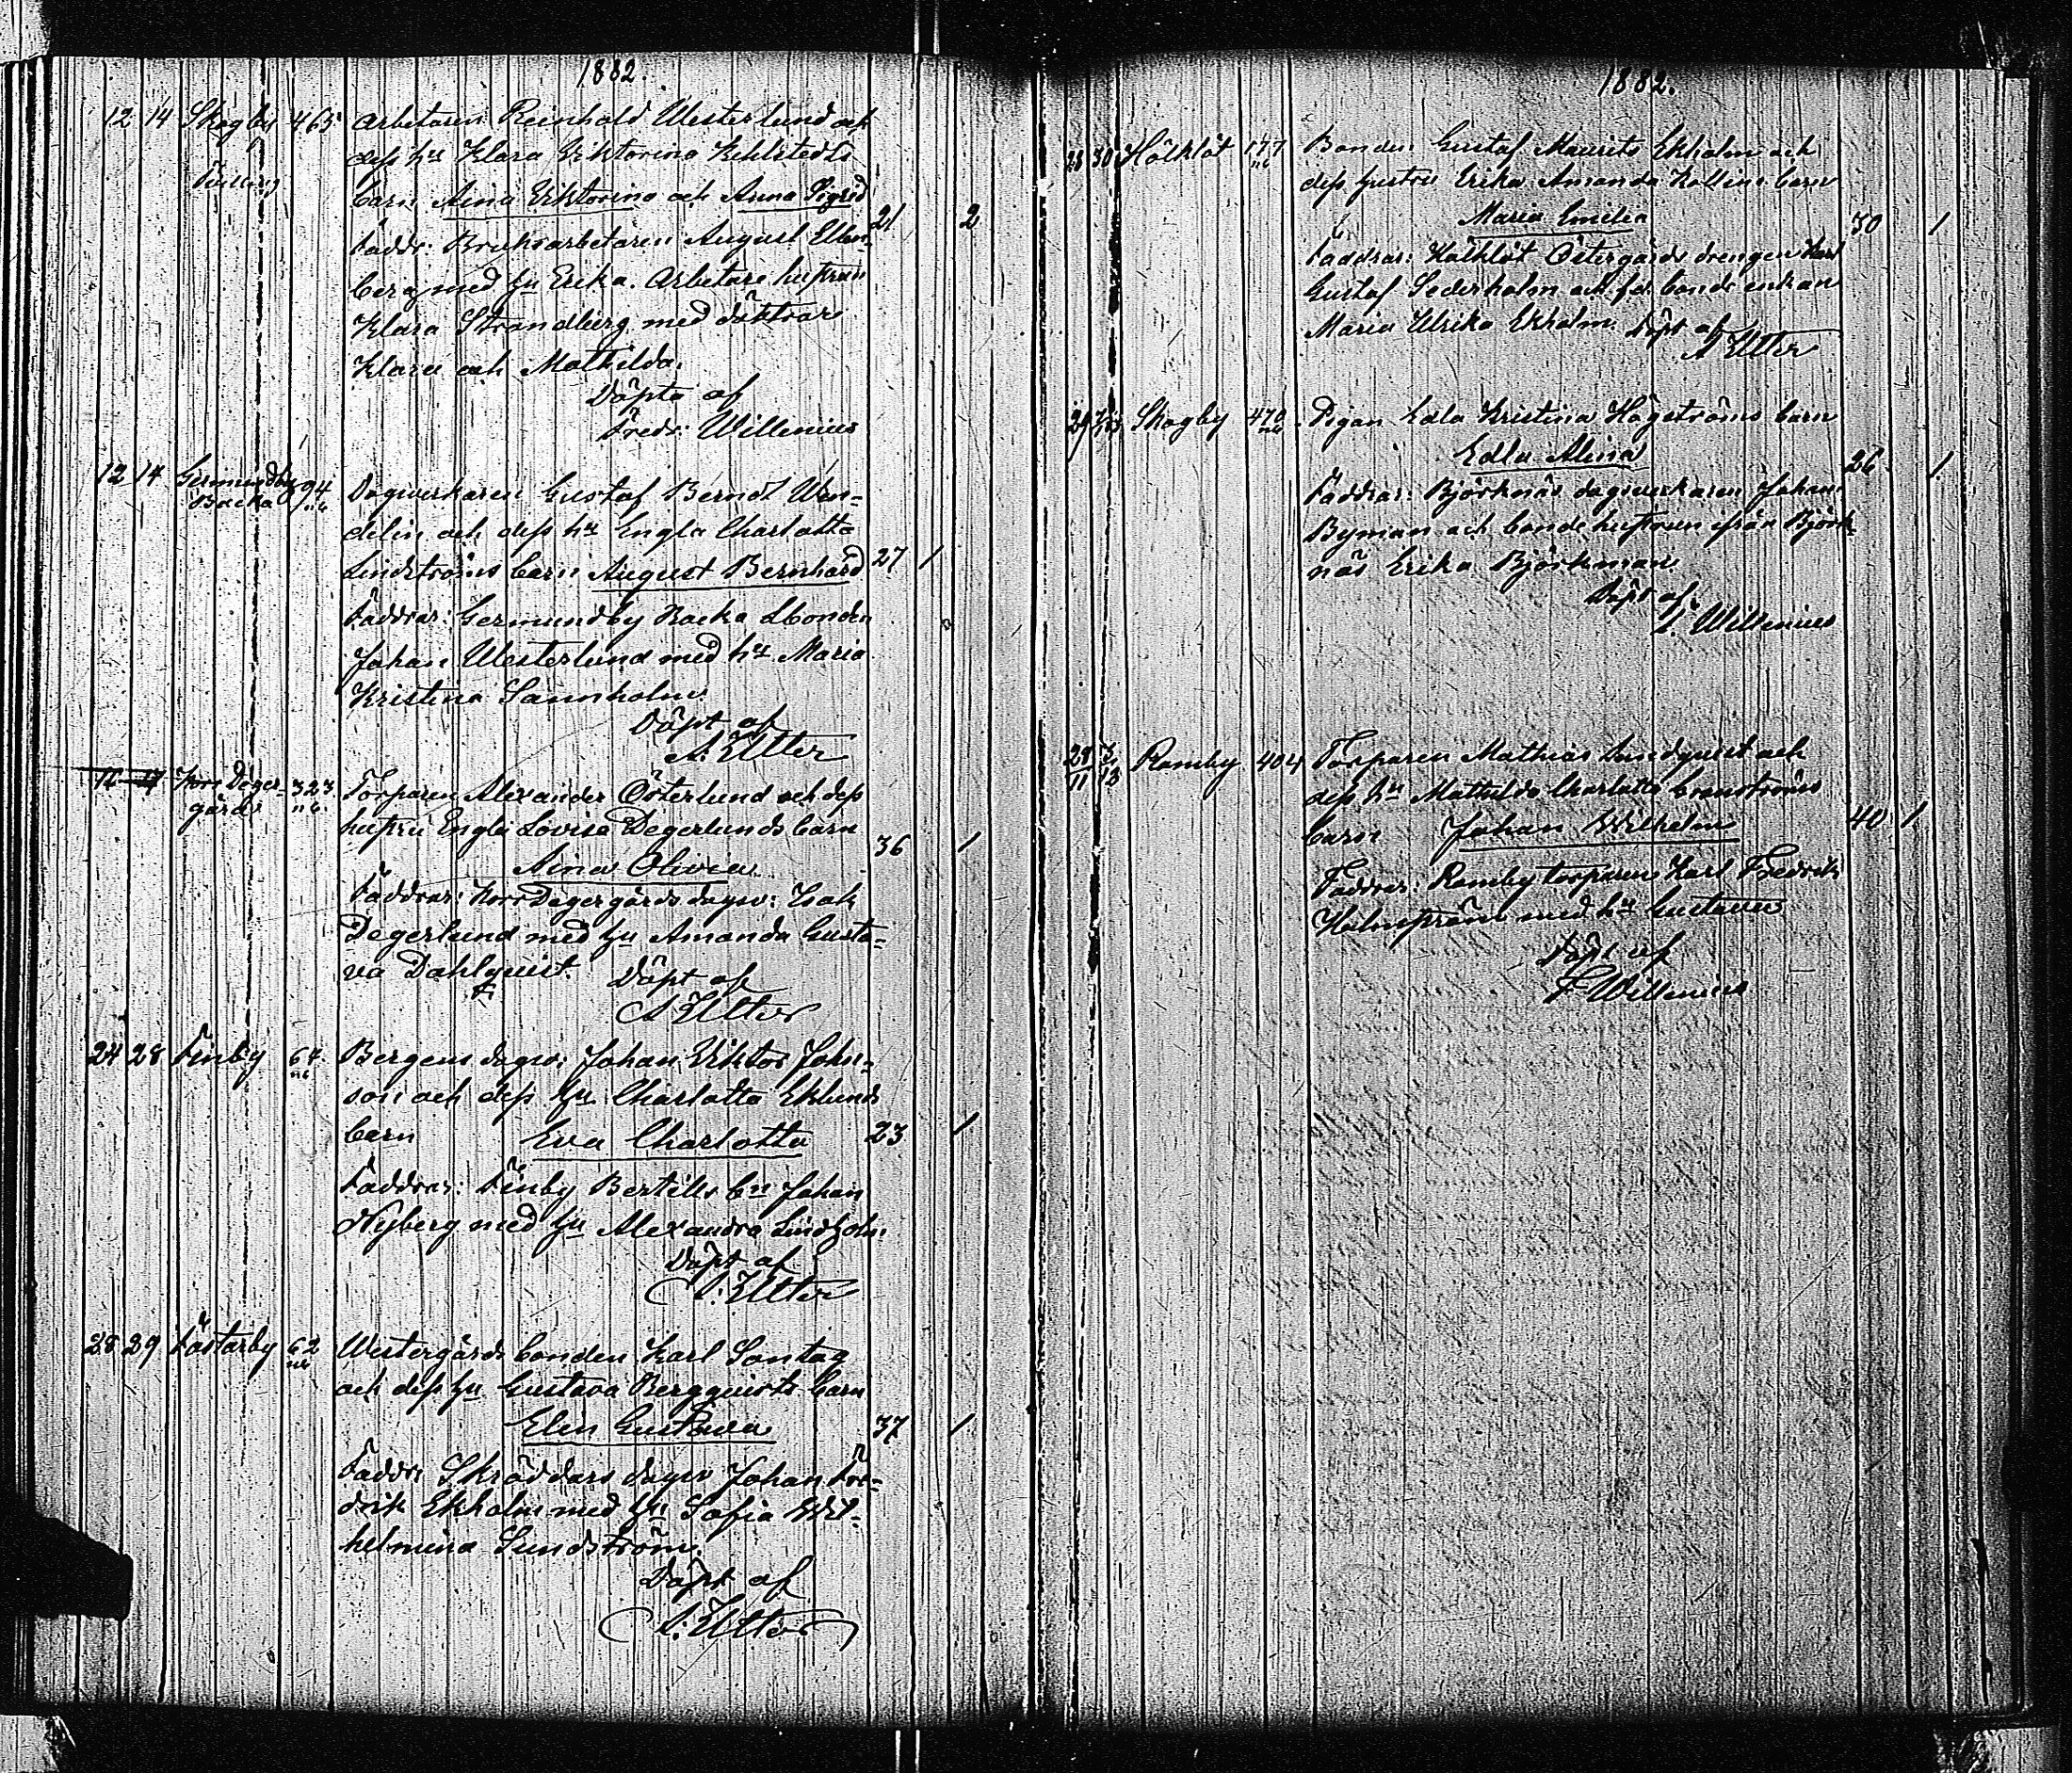 1882.
12 14 Skogby 465 Arbetaren Reinhold Westerlund och
dess hu Klara Viktorina
Tvilling
barn Aina Viktorina och Anna Sigrid
21 2
Faddr: Bruksarbetaren August Ellen-
berg med hu Erika. Arbetare hustrun
Klara Strandberg med döttrar
Klara och Mathilda.
Döpta af
Fredr: Willenius
12 14 Germundby 94 Dagsverkaren Gustaf Berndt Wen-
Backa
delin och dess hu Engla Charlotta
Lindströms barn August Bernhard 27 1
Faddrar: Germundby Backa bonden
Johan Westerlund med hu Maria
Kristina Sannholm
Döpt af
A. Utter
Norr Deger- 323 Torparen Alexander Österlund och dess
gårds
hustru Engla Lovisa Degerlunds barn
36 1
Aina Olivia
Faddrar: Norr Degergårds dagsv: Isak
Degerlund med hu Amanda Gusta-
va Dahlqvist. Döpt af
A Utter
24 28 Finby 64 Bergens dagsv: Johan Viktor John-
son och dess hu Charlotta Eklunds
barn Eva Charlotta 23 1
Faddrar: Finby Bertills bn Johan
Nyberg med hu Alexandra Lindholm.
Döpt af
A. Utter
28 29 Västarby 62 Westergårds bonden Karl Sontag
och dess hu Gustava Bergqvists barn
Elin Gustava 37 1
Faddr: Skräddars dagsv Johan Fre-
drik Ekholm med hu Sofia Wil-
helmina Sundström.
Döpt af
A. Utter
1882.
28 30 177 Bonden Gustaf Maurits Ekholm och
dess hustru Erika Amanda barn
Maria Emilia 30 1
Faddrar: Östergårds drengen Karl
Gustaf Sederholm och fd. bonde enkan
Maria Ulrika Ekholm. Döpt af
A Utter
29 Skogby 470 Pigan Edla Kristina Högströms barn
Edla Alina 26 1
Faddrar: Björknäs dagsverkaren Johan
Byman och bonde hustrun från Björk-
näs Erika Björkman
Döpt af
F. Willenius
28/11 3/12 Ramby 404 Torparen Mathias Lindqvist och
dess hu Mathilda Charlotta
barn Johan Wilhelm 40 1
Faddrar: Ramby torparen Karl Fredrik
Holmström med hu Gustava
Döpt af
F Willenius